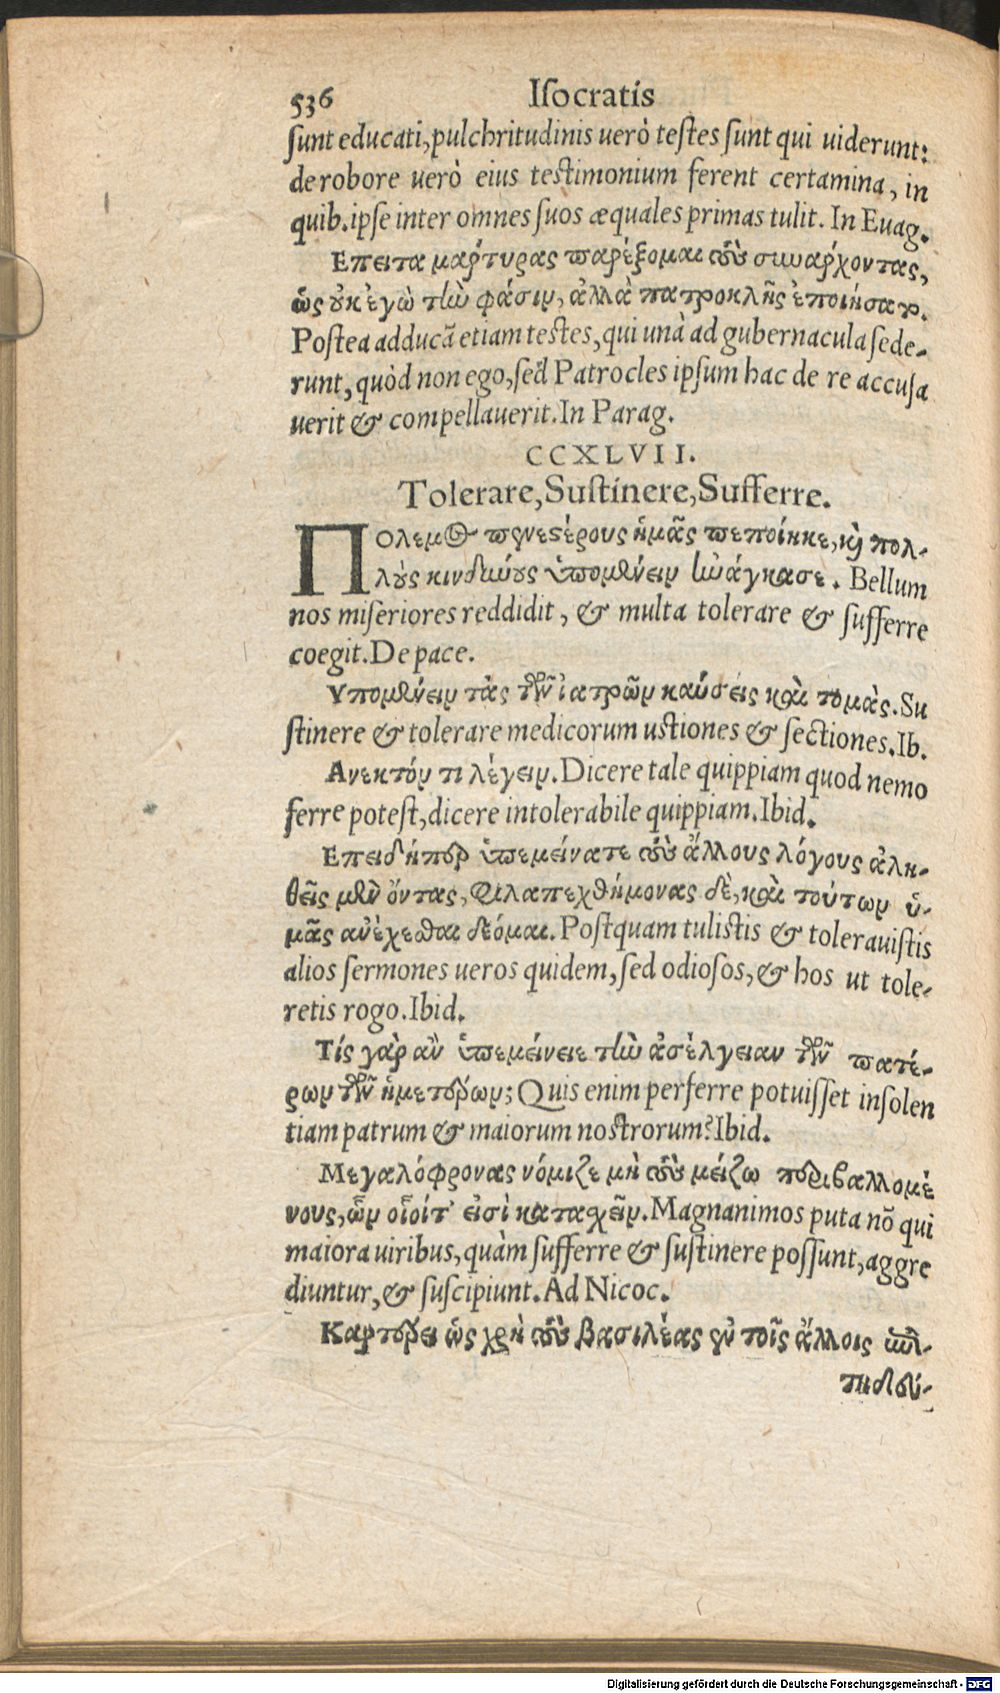 536 Iſocratis
ſunt educati, pulchritudinis uerò teſtes ſunt qui uiderunt:
de robore uerò eius teſtimonium ferent certamina, in
quib. ipſe inter omnes ſuos æquales primas tulit. In Euag.
Επειτα μάρτυρας παρέξομαι τοὺς συνάρχοντας,
ὡς οὐκ ἐγὼ τὴν φάσιν, ἀλλὰ πατροκλῆς ἐποιήσατο.
Poſtea adducã etiam teſtes, qui unà ad gubernacula ſede-
runt, quòd non ego, ſed Patrocles ipſum hac de re accuſa
uerit & compellauerit. In Parag.
CCXLVII.
Tolerare, Suſtinere, Sufferre.
Πολεμος πονεστέρους ἡμᾶς πεποίηκε, καὶ πολ-
λοὺς κινδύνους ὑπομένειν ἠνάγκασε. Bellum
nos miſeriores reddidit, & multa tolerare & ſufferre
coegit. De pace.
Υπομένειν τὰς τῶν ἰατρῶν καύσεις καὶ τομὰς. Su
ſtinere & tolerare medicorum uſtiones & ſectiones. Ib.
Ανεκτόν τι λέγειν. Dicere tale quippiam quod nemo
ferre poteſt, dicere intolerabile quippiam. Ibid.
Επειδήπερ ὑπεμείνατε τοὺς ἄλλους λόγους ἀλη-
θεῖς μὲν ὄντας, φιλαπεχθήμονας δὲ, καὶ τούτων ὑ-
μᾶς ἀνέχεσθαι δέομαι. Poſtquam tuliſtis & tolerauiſtis
alios ſermones ueros quidem, ſed odioſos, & hos ut tole-
retis rogo. Ibid.
Τίς γὰρ ἂν ὑπεμείνειε τὴν ἀσέλγειαν τῶν πατέ-
ρων τῶν ἡμετέρων; Quis enim perferre potuiſſet inſolen
tiam patrum & maiorum noſtrorum? Ibid.
Μεγαλόφρονας νόμιζε μὴ τοὺς μείζω περιβαλλομέ
νους, ὧν οἷοίτ' εἰσὶ κατασχεῖν. Magnanimos puta nõ qui
maiora uiribus, quàm ſufferre & ſuſtinere poſſunt, aggre
diuntur, & ſuſcipiunt. Ad Nicoc.
Καρτέρει ὡς χρὴ τοὺς βασιλέας ἐν τοῖς ἄλλοις ἐπι-
τηδεύ-
Digitalisierung gefördert durch die Deutsche Forschungsgemeinschaft - DFG